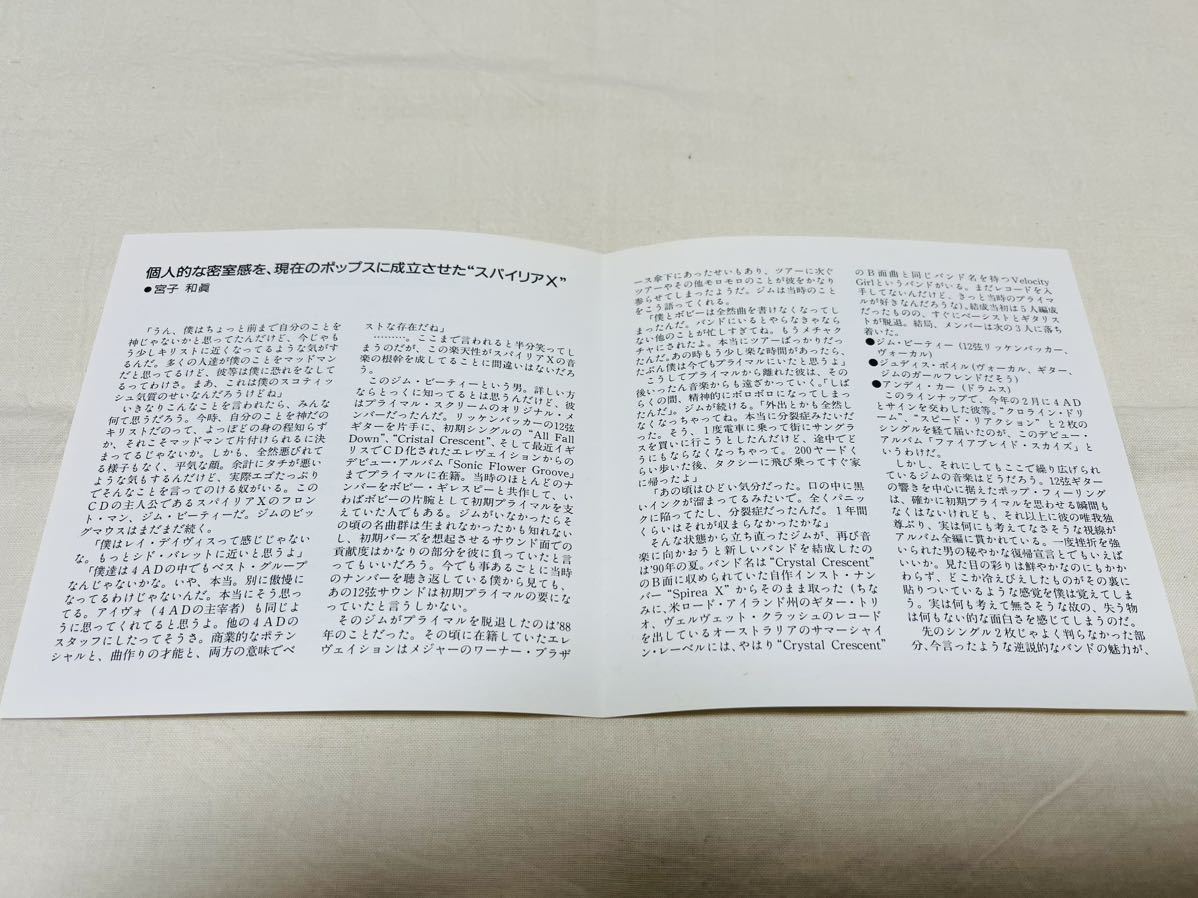 個人的な密室感を、現在のポップスに成立させた“スパイリアX”
●宮子 和眞
「うん、僕はちょっと前まで自分のことを
神じゃないかと思ってたんだけど、今じゃも
う少しキリストに近くなってるような気がす
るんだ。多くの人達が僕のことをマッドマン
だと思ってるけど、彼等は僕に恐れをなして
るってわけさ。まあ、これは僕のスコティッ
シュ気質のせいなんだろうけどね」
いきなりこんなことを言われたら、みんな
何て思うだろう。今時、自分のことを神だの
キリストだのって、よっぽどの身の程知らず
か、それこそマッドマンて片付けられるに決
まってるじゃないか。しかも、全然悪びれて
る様子もなく、平気な顔。余計にタチが悪い
ような気もするんだけど、実際エゴたっぷり
でそんなことを言ってのける奴がいる。この
CDの主人公であるスパイリアXのフロン
ト・マン、ジム・ビーティーだ。ジムのビッ
グマウスはまだまだ続く。
「僕はレイ・デイヴィスって感じじゃない
な。もっとシド・バレットに近いと思うよ」
「僕達は4ADの中でもベスト・グループ
なんじゃないかな。いや、本当。別に傲慢に
なってるわけじゃないんだ。本当にそう思っ
てる。アイヴォ(4ADの主宰者)も同じよ
うに思ってくれてると思うよ。他の4ADの
スタッフにしたってそうさ。商業的なポテン
シャルと、曲作りの才能と、両方の意味でベ
ストな存在だね」
………。ここまで言われると半分笑ってし
まうのだが、この楽天性がスパイリアXの音
楽の根幹を成してることに間違いはないだろ
う。
このジム・ビーティーという男。詳しい方
ならとっくに知ってるとは思うんだけど、彼
はプライマル・スクリームのオリジナル・メ
ンバーだったんだ。リッケンバッカーの12弦
ギターを片手に、初期シングルの“All Fall
Down”、“Cristal Crescent”、そして最近イギ
リスでCD化されたエレヴェイションからの
デビュー・アルバム「Sonic Flower Groove」
までプライマルに在籍。当時のほとんどのナ
ンバーをボビー・ギレスピーと共作して、い
わばボビーの片腕として初期プライマルを支
えていた人でもある。ジムがいなかったらそ
の頃の名曲群は生まれなかったかも知れない
し、初期バーズを想起させるサウンド面での
貢献度はかなりの部分を彼に負っていたと言
ってもいいだろう。今でも事あるごとに当時
のナンバーを聴き返している僕から見ても、
あの12弦サウンドは初期プライマルの要にな
っていたと言うしかない。
そのジムがプライマルを脱退したのは'88
年のことだった。その頃に在籍していたエレ
ヴェイションはメジャーのワーナー・ブラザ
ース傘下にあったせいもあり、ツアーに次ぐ
ツアーやその他モロモロのことが彼をかなり
参らせてしまったようだ。ジムは当時のこと
をこう語ってくれる。
「僕とボビーは全然曲を書けなくなってし
まったんだ。バンドにいるとやらなきゃなら
ない他のことが忙しすぎてね。もうメチャク
チャにされたよ。本当にツアーばっかりだっ
たんだ。あの時もう少し楽な時間があったら、
たぶん僕は今でもプライマルにいたと思うよ」
こうしてプライマルから離れた彼は、その
後いったん音楽からも遠ざかっていく。「しば
らくの間、精神的にボロボロになってしまっ
たんだ」。ジムが続ける。「外出とかも全然し
なくなっちゃってね。本当に分裂症みたいだ
った。そう、1度電車に乗って街にサングラ
スを買いに行こうとしたんだけど、途中でど
うにもならなくなっちゃって。200ヤードく
らい歩いた後、タクシーに飛び乗ってすぐ家
に帰ったよ」
「あの頃はひどい気分だった。口の中に黒
いインクが溜まってるみたいで。全くパニッ
クに陥ってたし、分裂症だったんだ。1年間
くらいはそれが収まらなかったかな」
そんな状態から立ち直ったジムが、再び音
楽に向かおうと新しいバンドを結成したの
は'90年の夏。バンド名は“Crystal Crescent”
のB面に収められていた自作インスト・ナン
バー“Spirea X”からそのまま取った(ちな
みに、米ロード・アイランド州のギター・トリ
オ、ヴェルヴェット・クラッシュのレコード
を出しているオーストラリアのサマーシャイ
ン・レーベルには、やはり“Crystal Crescent”
のB面曲と同じバンド名を持つVelocity
Girlというバンドがいる。まだレコードを入
手してないんだけど、きっと当時のプライマ
ルが好きなんだろうな)。結成当初は5人編成
だったものの、すぐにベーシストとギタリス
トが脱退。結局、メンバーは次の3人に落ち
着いた。
●ジム・ビーティー(12弦リッケンバッカー、
ヴォーカル)
●ジュディス・ボイル(ヴォーカル、ギター、
ジムのガールフレンドだそう)
●アンディ・カー(ドラムス)
このラインナップで、今年の2月に4AD
とサインを交わした彼等。“クロライン・ドリ
ーム”、“スピード・リアクション”と2枚の
シングルを経て届いたのが、このデビュー・
アルバム「ファイアブレイド・スカイズ」と
いうわけだ。
しかし、それにしてもここで繰り広げられ
ているジムの音楽はどうだろう。12弦ギター
の響きを中心に据えたポップ・フィーリング
は、確かに初期プライマルを思わせる瞬間も
なくはないけれども、それ以上に彼の唯我独
尊ぶり、実は何にも考えてなさそうな視線が
アルバム全編に貫かれている。一度挫折を強
いられた男の秘やかな復帰宣言とでもいえば
いいか。見た目の彩りは鮮やかなのにもかか
わらず、どこか冷えびえしたものがその裏に
貼りついているような感覚を僕は覚えてしま
う。実は何も考えて無さそうな故の、失う物
は何もない的な面白さを感じてしまうのだ。
先のシングル2枚じゃよく判らなかった部
分、今言ったような逆説的なバンドの魅力が、